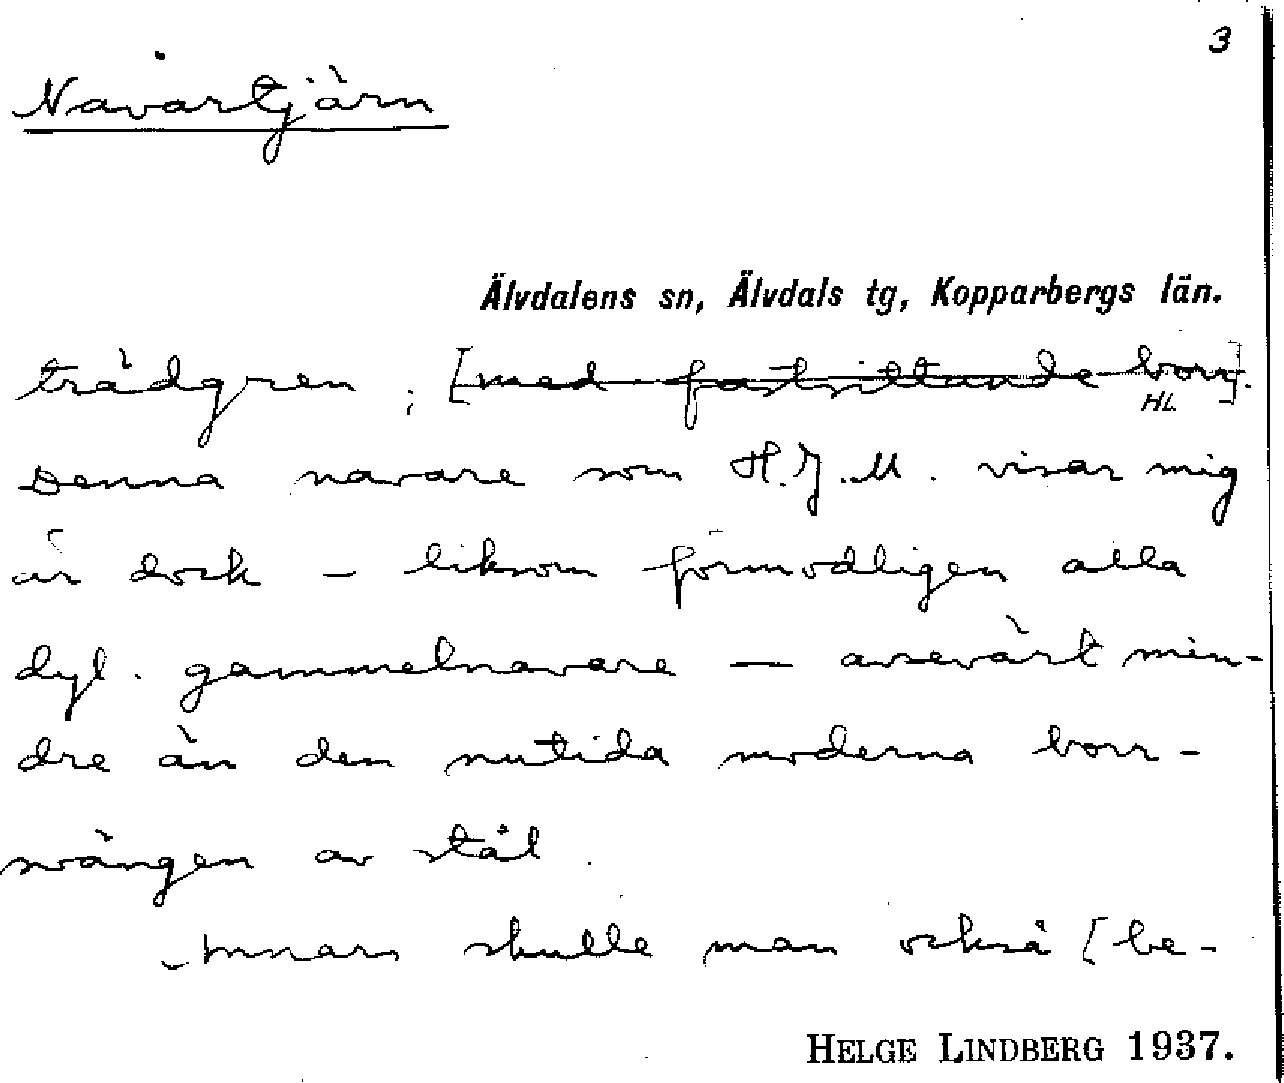 3
Navartjärn
Älvdalens sn, Älvdals tg, Kopparbergs län.
trädgren; [med fastsittande borr].
HL
Denna navare som H.J.M. visar mig
är dock – liksom förmodligen alla
dyl. gammelnavare – avsevärt min-
dre än den nutida moderna borr-
svängen av stål.
Annars skulle man också [be-
HELGE LINDBERG 1937.